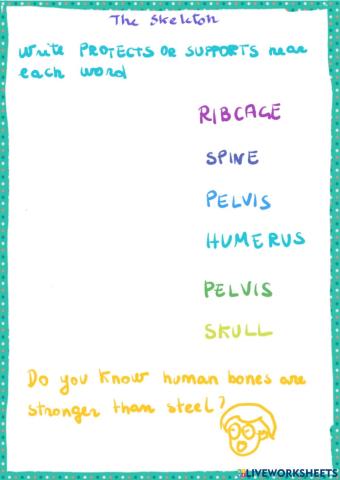 The Skeleton
Write PROTECTS OR SUPPORTS near
each word
RIBCAGE
SPINE
PELVIS
HUMERUS
PELVIS
SKULL
Do you know human bones are
stronger than steel?
LIVEWORKSHEETS